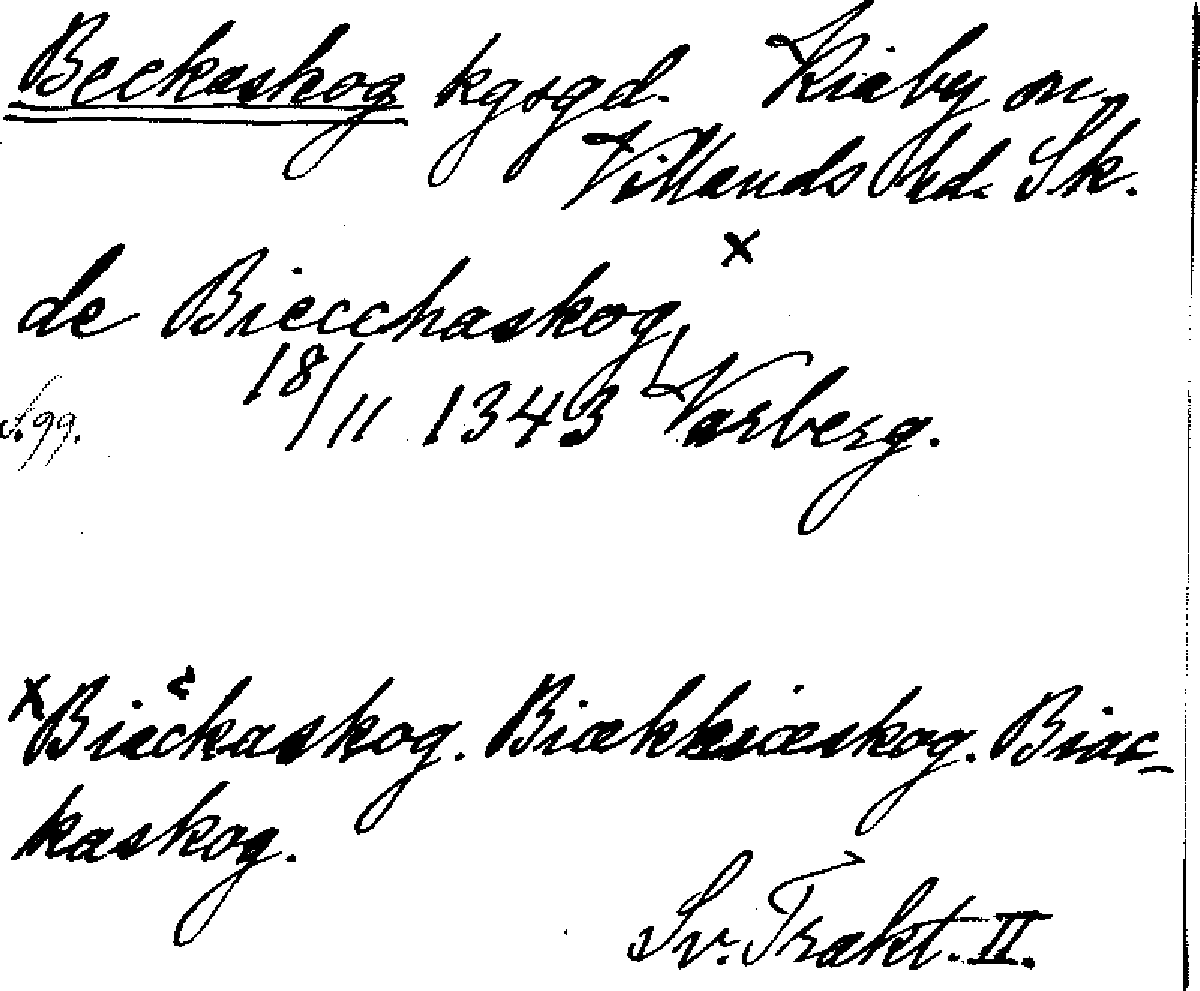 Beckaskog kgsgd. Kiaby sn
Villands hd. Sk.
de Biecchaskog x
18/11 1343 Varberg.
S. 99.
x Biæckaskog. Biækkiæskog. Biac-
kaskog.
Sv. Trakt. II.